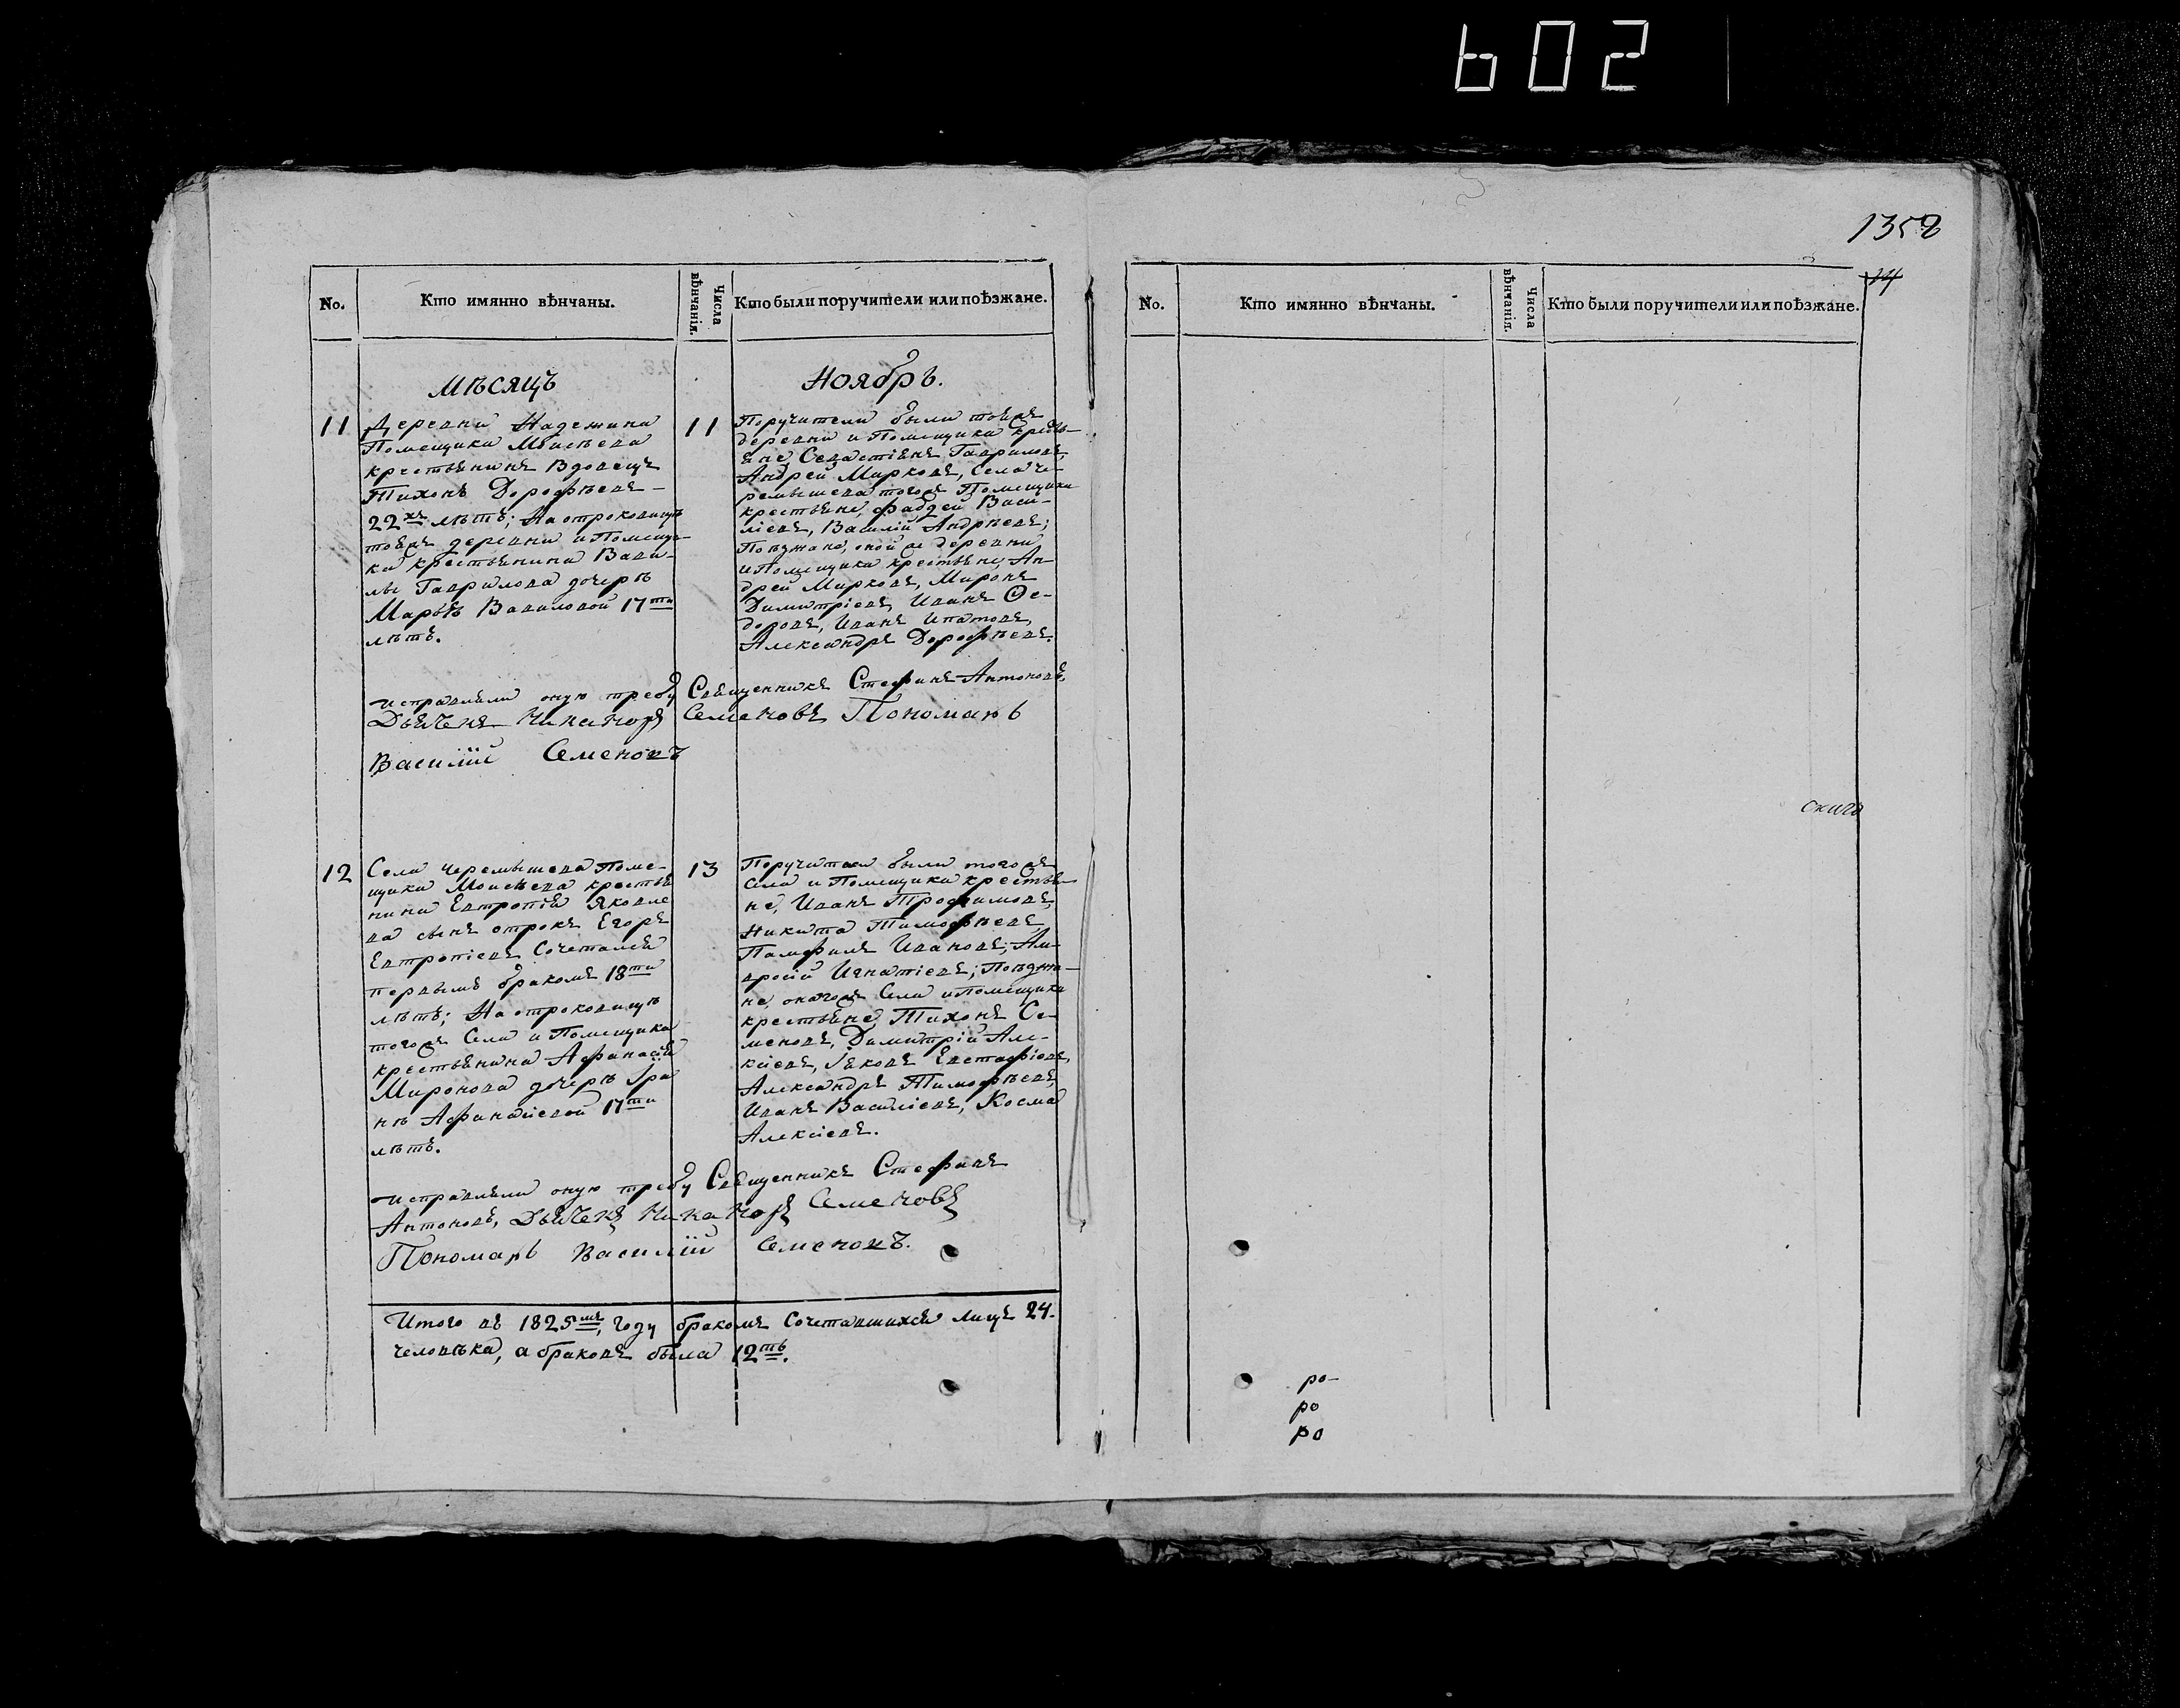 602
1352
No.
Кто имянно вѣнчаны.
Числа вѣнчанія.
Кто были поручители или поѣзжане.
Мѣсяцъ
Ноябрь.
11
Деревни Надежина
Помещика Моисѣева
крестьянинъ Вдовецъ
Тихонъ Дорофѣевъ
22хъ лѣтъ; На отроковицѣ
тояжъ деревни и Помещи-
ка крестьянина Вави-
лы Гаврилова дочерѣ
Марьѣ Вавиловой 17ти
лѣтъ.
11
Поручители были тояжъ
деревни и Помещика кресть-
яне Севастіянъ Гавриловъ,
Андрей Марковъ, Села Че-
ремышева тогожъ Помещика
крестьяне, Фаддей Васи-
ліевъ, Василій Андрѣевъ;
Поѣзжане, оной же деревни
и Помещика крестьяне, Ан-
дрей Марковъ, Миронъ
Димитріевъ, Иванъ Ѳе-
доровъ, Иванъ Ипатовъ,
Александръ Дорофѣевъ.
исправляли оную требу Священникъ Стефанъ Антоновъ,
Дьячекъ Никаноръ Семеновъ Пономарь
Василій Семеновъ
12
Села Черемышева Поме-
щика Моисѣева крестья
нина Евтропія Яковле
ва сынъ отрокъ Егоръ
Евтропіевъ Сочетался
первымъ бракомъ 18ти
лѣтъ; На отроковицѣ
тогожъ Села и Помещика
крестьянина Афанасія
Миронова дочерѣ Іри
нѣ Афанасіевой 17ти
лѣтъ.
13
Поручители были тогожъ
Села и Помещика крестья-
не, Иванъ Трофимовъ,
Никита Тимофѣевъ
Памфилъ Ивановъ; Ам-
вросій Игнатіевъ; Поѣзжа-
не, онагожъ Села и Помещика
крестьяне, Тихонъ Се-
меновъ, Димитрій Але-
ксіевъ, Іаковъ Евстафіевъ,
Александръ Тимофѣевъ,
Иванъ Василіевъ, Косма
Алексіевъ.
исправляли оную требу Священникъ Стефанъ
Антоновъ, Дьячекъ Никаноръ Семеновъ
Пономарь Василій Семеновъ.
Итого въ 1825мъ, году бракомъ Сочетавшихся лицъ 24.
человѣка, а браковъ было 12ть.
No.
Кто имянно вѣнчаны.
Числа вѣнчанія.
Кто были поручители или поѣзжане.
ро-
ро
ро